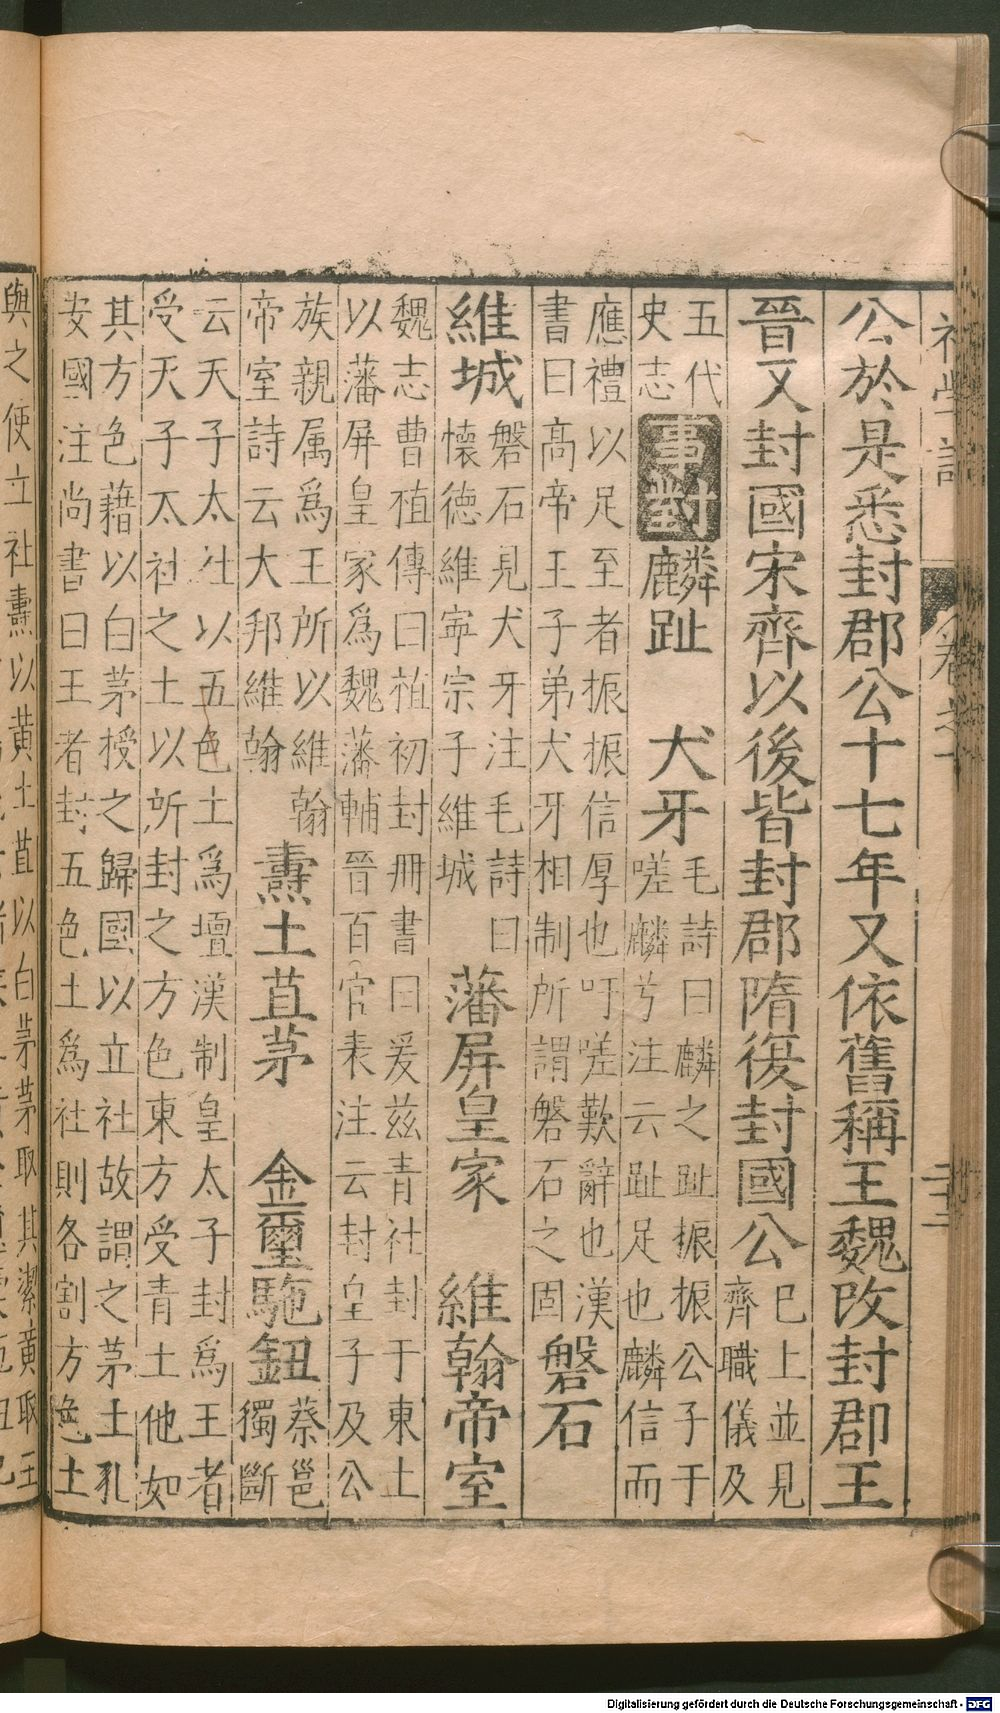 公於是悉封郡公十七年又依舊稱王魏改封郡王
晉又封國宋齊以後皆封郡隋復封國公
已上並見
齊職儀及
五代
史志
事對
麟趾 犬牙
毛詩曰麟之趾振振公子于
嗟麟兮注云趾足也麟信而
應禮以足至者振振信厚也吁嗟歎辭也漢
書曰高帝王子弟犬牙相制所謂磐石之固
磐石
維城
磐石見犬牙注毛詩曰
懷德維寧宗子維城
藩屏皇家 維翰帝室
魏志曹植傳曰植初封冊書曰爰茲青社封于東土
以藩屏皇家爲魏藩輔晉百官表注云封皇子及公
族親属爲王所以維翰
帝室詩云大邦維翰
燾土苴茅 金璽駞鈕
蔡邕
獨斷
云天子太社以五色土爲壇漢制皇太子封爲王者
受天子太社之土以所封之方色東方受青土他如
其方色藉以白茅授之歸國以立社故謂之茅土孔
安國注尚書曰王者封五色土爲社則各割方色土
與之使立社燾以黄土苴以白茅茅取其潔黄取王
Digitalisierung gefördert durch die Deutsche Forschungsgemeinschaft - DFG